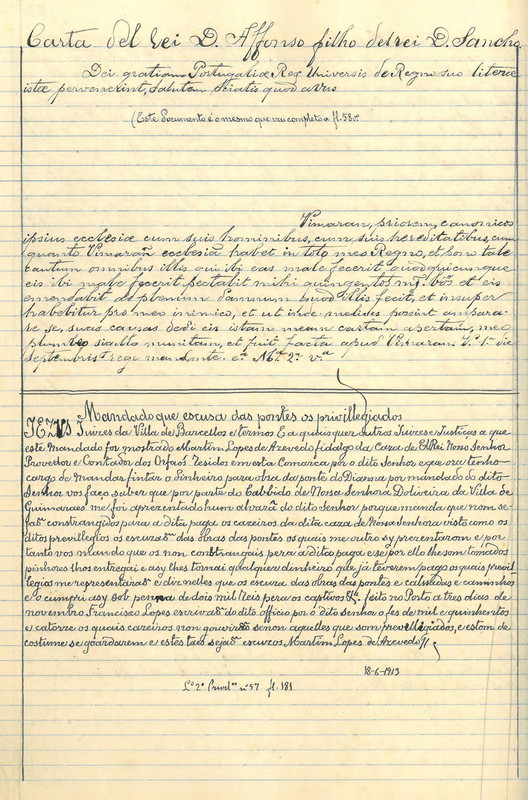 Carta del rei D. Affonso filho delrei D. Sancho.
Dei gratiam Portugaliæ Rex Universis de Regno suo literæ
istæ pervenerint, salutem Sciatis quod avus
(Este documento é o mesmo que vai completo a fl. 58vº.
Vimaran, priorem, canonicos
ipsius ecclesiæ cum suis hominibus, cum suis hereditatibus, cum
quanto Vimarañ ecclesia habet in toto meo Regno, et pono tale
cautum omnibus illis qui ibi eas male fecerit quod quicunque
eis ibi male fecerit pectabit mihi quingentos mj. bos et eis
emendabit ad plenum damnum quod illis fecit, et insuper
habebitur pro meo inimico, et ut inde melides possint ampara-
re se, suas causas dedi eis istam meam cartam apertam, meo
plumbeo sigillo munitam, et fuit facta apud Vimaran. V. 1º die
septembris rege mandante. eª. Mª. 2ª. vª
Mandado que escusa das pontes os privillegiados
JEZVS Juizes da Villa de Barcellos e termos E a quaisquer outros Juizes e Justiças a que
este Mandado for mostrado Martim Lopes de Azevedo fidalgo da Caza de ElRei Nosso Senhor
Provedor e Contador dos Orfaõs Rezidos em esta Comarca por o dito Senhor e que ora tenho
cargo de Mandar fintar o Dinheiro para obra da ponte de Dianna por mandado do dito
Senhor vos faço saber que por parte do Cabbido de Nossa Senhora Doliveira da Villa de
Guimaraes me foi aprezentado hum alvará do dito Senhor porque manda que nom se-
jaõ constrangidos para a dita paga os cazeiros da dita caza de Nossa Senhora visto como os
ditos previllegios os escuzaõ das obras das pontes os quais me outro sy prezentarom e por
tanto vos mando que os non constrangais pera a dita paga e se por ello lhe som tomados
pinhores lhos entregai e asy lhes tornai qualquer dinheiro que já teverem pago os quais previl
legios me reprezentaraõ e diz nelles que os escuza das obras das pontes e calsadas e caminhos
e o cumpri asy sob penna de dois mil Reis pera os captivos &ª. feito no Porto a tres dias de
novembro. Francisco Lopes escrivaõ do dito officio por o dito Senhor o fes de mil e quinhentos
e catorze os quais cazeiros non gouviraõ senon aquelles que som previllegiados, e estom de
costume se goardarem e estes taes sejaõ escuzos Martim Lopes de Azevedo //
18-6-1913
Lº 2º Privelºˢ nº 57 fl. 181